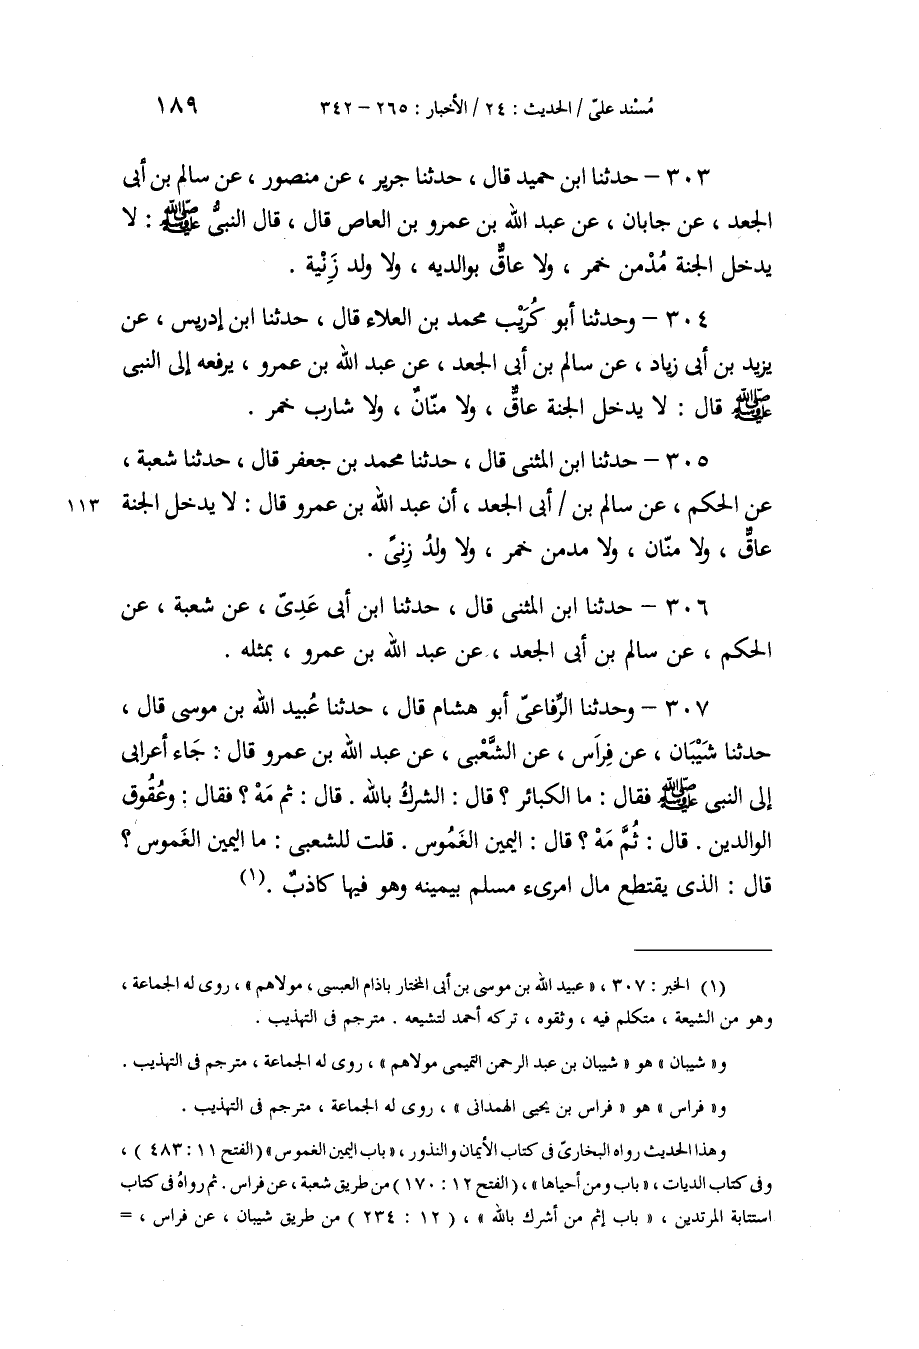 مُسْند علىّ / الحديث : ٢٤ / الأخبار : ٢٦٥ – ٣٤٢ ١٨٩
٣٠٣ – حدثنا ابن حميد قال ، حدثنا جرير ، عن منصور ، عن سالم بن أبى
الجعد ، عن جابان ، عن عبد الله بن عمرو بن العاص قال ، قال النبىُّ ﷺ : لا
يدخل الجنة مُدْمن خمر ، ولا عاقٌّ بوالديه ، ولا ولد زَنْية .
٣٠٤ – وحدثنا أبو كُرَيْب محمد بن العلاء قال ، حدثنا ابن إدريس ، عن
يزيد بن أبى زياد ، عن سالم بن أبى الجعد ، عن عبد الله بن عمرو ، يرفعه إلى النبى
ﷺ قال : لا يدخل الجنة عاقٌّ ، ولا منّانٌ ، ولا شارب خمر .
٣٠٥ – حدثنا ابن المثنى قال ، حدثنا محمد بن جعفر قال ، حدثنا شعبة ،
عن الحكم ، عن سالم بن / أبى الجعد ، أن عبد الله بن عمرو قال : لا يدخل الجنة ١١٣
عاقٌّ ، ولا منّان ، ولا مدمن خمر ، ولا ولدُ زِنىً .
٣٠٦ – حدثنا ابن المثنى قال ، حدثنا ابن أبى عَدِىّ ، عن شعبة ، عن
الحكم ، عن سالم بن أبى الجعد ، عن عبد الله بن عمرو ، بمثله .
٣٠٧ – وحدثنا الرِّفاعىّ أبو هشام قال ، حدثنا عُبيد الله بن موسى قال ،
حدثنا شَيْبَان ، عن فِرَاس ، عن الشَّعْبى ، عن عبد الله بن عمرو قال : جَاء أعرابى
إلى النبى ﷺ فقال : ما الكبائر ؟ قال : الشركُ بالله . قال : ثم مَهْ ؟ فقال : وعُقُوق
الوالدين . قال : ثُمَّ مَهْ ؟ قال : اليمين الغَمُوس . قلت للشعبى : ما اليمين الغَموس ؟
قال : الذى يقتطع مال امرىء مسلم بيمينه وهو فيها كاذبٌ .(١)
(١) الخبر : ٣٠٧ ، « عبيد الله بن موسى بن أبى المختار باذام العبسى ، مولاهم » ، روى له الجماعة ،
وهو من الشيعة ، متكلم فيه ، وثقوه ، تركه أحمد لتشيعه . مترجم فى التهذيب .
و« شيبان » هو « شيبان بن عبد الرحمن التميمى مولاهم » ، روى له الجماعة ، مترجم فى التهذيب .
و« فراس » هو « فراس بن يحيى الهمدانى » ، روى له الجماعة ، مترجم فى التهذيب .
وهذا الحديث رواه البخارىّ فى كتاب الأيمان والنذور ، « باب اليمين الغموس » ( الفتح ١١ : ٤٨٣ ) ،
وفى كتاب الديات ، « باب ومن أحياها » ، ( الفتح ١٢ : ١٧٠ ) من طريق شعبة ، عن فراس . ثم رواهُ فى كتاب
استتابة المرتدين ، « باب إثم من أشرك بالله » ، ( ١٢ : ٢٣٤ ) من طريق شيبان ، عن فراس ، =